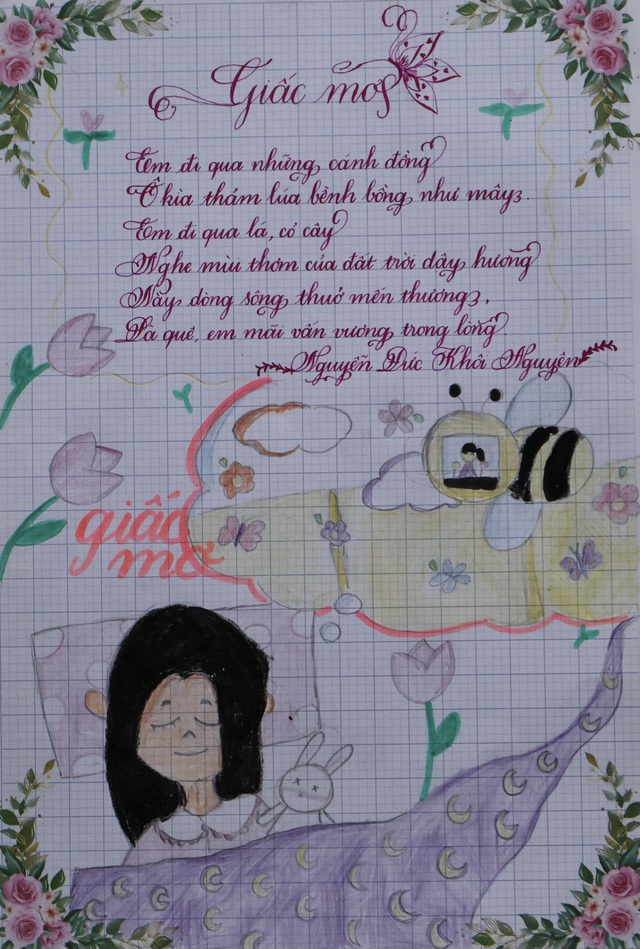 Giấc mơ
Em đi qua những cánh đồng
Ô kìa thảm lúa bềnh bồng như mây.
Em đi qua lá, cỏ cây
Nghe mùi thơm của đất trời dậy hương
Nảy dòng sông thuở mến thương,
Là quê, em mãi vấn vương trong lòng.
Nguyễn Đức Khôi Nguyên
giấc
mơ